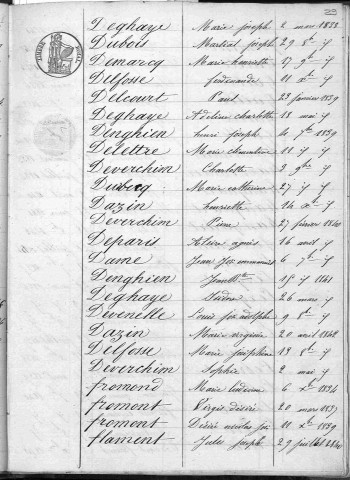 Deghaye Marie joseph 2 mars 1838
Dubois Martial joseph 29 8bre if
Demarcq Marie henriette 17 9bre if
Delfosse ferdinande 11 Xbre if
Delcourt Paul 23 fevrier 1839
Deghaye Adeline charlotte 18 mai if
Dinghien henri joseph 4 7bre 1839
Delettre Marie clementine 11 if
Deverchin Charlotte 3 9bre if
Dubecq Marie catherine 27 if if
Dazin henriette 14 Xbre if
Deverchin Pierre 27 fevrier 1840
Deparis agnès 16 aout if
Dame Jean 6 7bre if
Denghien 15 if 1841
Deghaye 26 mars if
Devenelle Louis adolphe 9 8bre if
Dazin Marie virginie 20 avril 1842
Delfosse Marie joséphine 13 8bre if
Deverchin Sophie 2 mai if
fromond Marie 6 Xbre 1834
fromont désiré 20 mars 1837
fromont Désiré nicolas 10 Xbre 1839
flament Jules joseph 29 juillet 1840